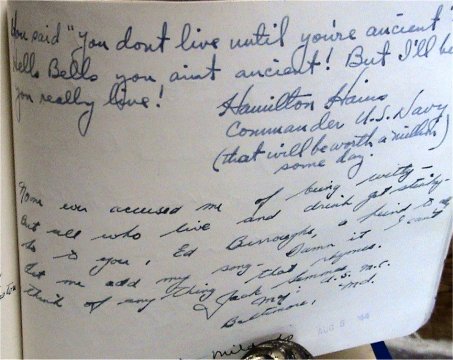 You said "you dont live until you're ancient"
Hells Bells you aint ancient! But I'll be
you really live!
Hamilton Hains
Commander U.S. Navy
(that will be worth a million
some day.
None ever accused me of being witty—
But all who live and drink get
to to you, Ed Burroughs, a
Let me add my song. Damn it I can't
think of any thing that rhymes.
Jack
U.S. M.C.
Baltimore, Md.
AUG 5